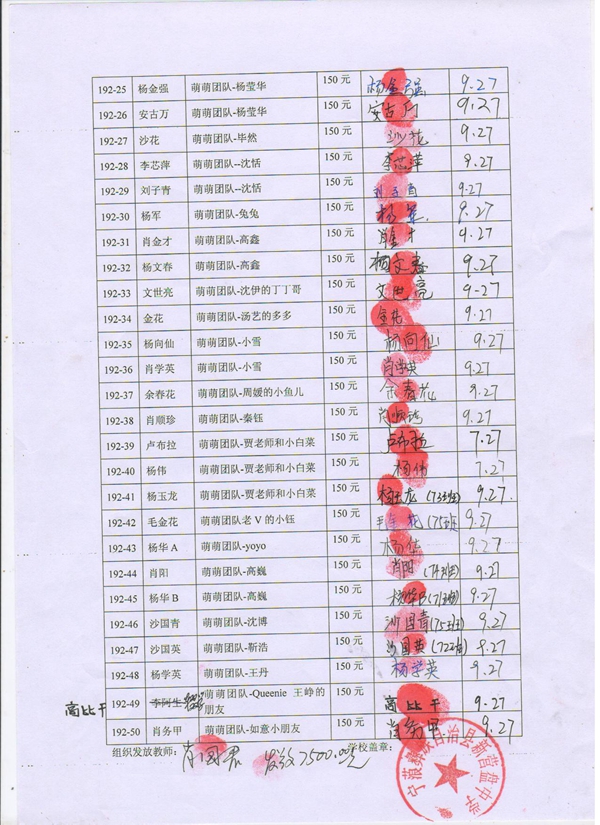 192-25 杨金强 萌萌团队-杨莹华 150 元 杨金强 9.27
192-26 安古万 萌萌团队-杨莹华 150 元 安古万 9.27
192-27 沙花 萌萌团队-毕然 150 元 沙花 9.27
192-28 李芯萍 萌萌团队--沈恬 150 元 李芯萍 9.27
192-29 刘子青 萌萌团队--沈恬 150 元 9.27
192-30 杨军 萌萌团队-兔兔 150 元 杨军. 9.27
192-31 肖金才 萌萌团队-高鑫 150 元 肖金才 9.27
192-32 杨文春 萌萌团队-高鑫 150 元 杨文春 9.27
192-33 文世亮 萌萌团队-沈伊的丁丁哥 150 元 文世亮 9-27
192-34 金花 萌萌团队-汤艺的多多 150 元 金花 9.27
192-35 杨向仙 萌萌团队-小雪 150 元 杨向仙 9.27
192-36 肖学英 萌萌团队-小雪 150 元 肖学英 9.27
192-37 余春花 萌萌团队-周媛的小鱼儿 150 元 余春花 9.27
192-38 肖顺珍 萌萌团队-秦钰 150 元 肖顺珍 9.27
192-39 卢布拉 萌萌团队-贾老师和小白菜 150 元 卢布拉 9.27
192-40 杨伟 萌萌团队-贾老师和小白菜 150 元 杨伟 9.27
192-41 杨玉龙 萌萌团队-贾老师和小白菜 150 元 杨玉龙(73班) 9.27.
192-42 毛金花 萌萌团队老 V 的小钰 150 元 毛金花(75班) 9.27
192-43 杨华 A 萌萌团队-yoyo 150 元 杨华 9.27
192-44 肖阳 萌萌团队-高巍 150 元 肖阳(74班) 9.27
192-45 杨华 B 萌萌团队-高巍 150 元 杨华B(71班) 9.27
192-46 沙国青 萌萌团队-沈博 150 元 沙国青(75班) 9.27
192-47 沙国英 萌萌团队-靳浩 150 元 沙国英(72班) 9.27
192-48 杨学英 萌萌团队-王丹 150 元 杨学英 9.27
高比干 192-49 李阿生 萌萌团队-Queenie 王峥的 150 元 高比干 9.27
朋友
192-50 肖务甲 萌萌团队-如意小朋友 150 元 肖务甲 9.27
组织发放教师: 肖国君 发放7500.00元 学校盖章:
宁蒗彝族自治县新营盘中学